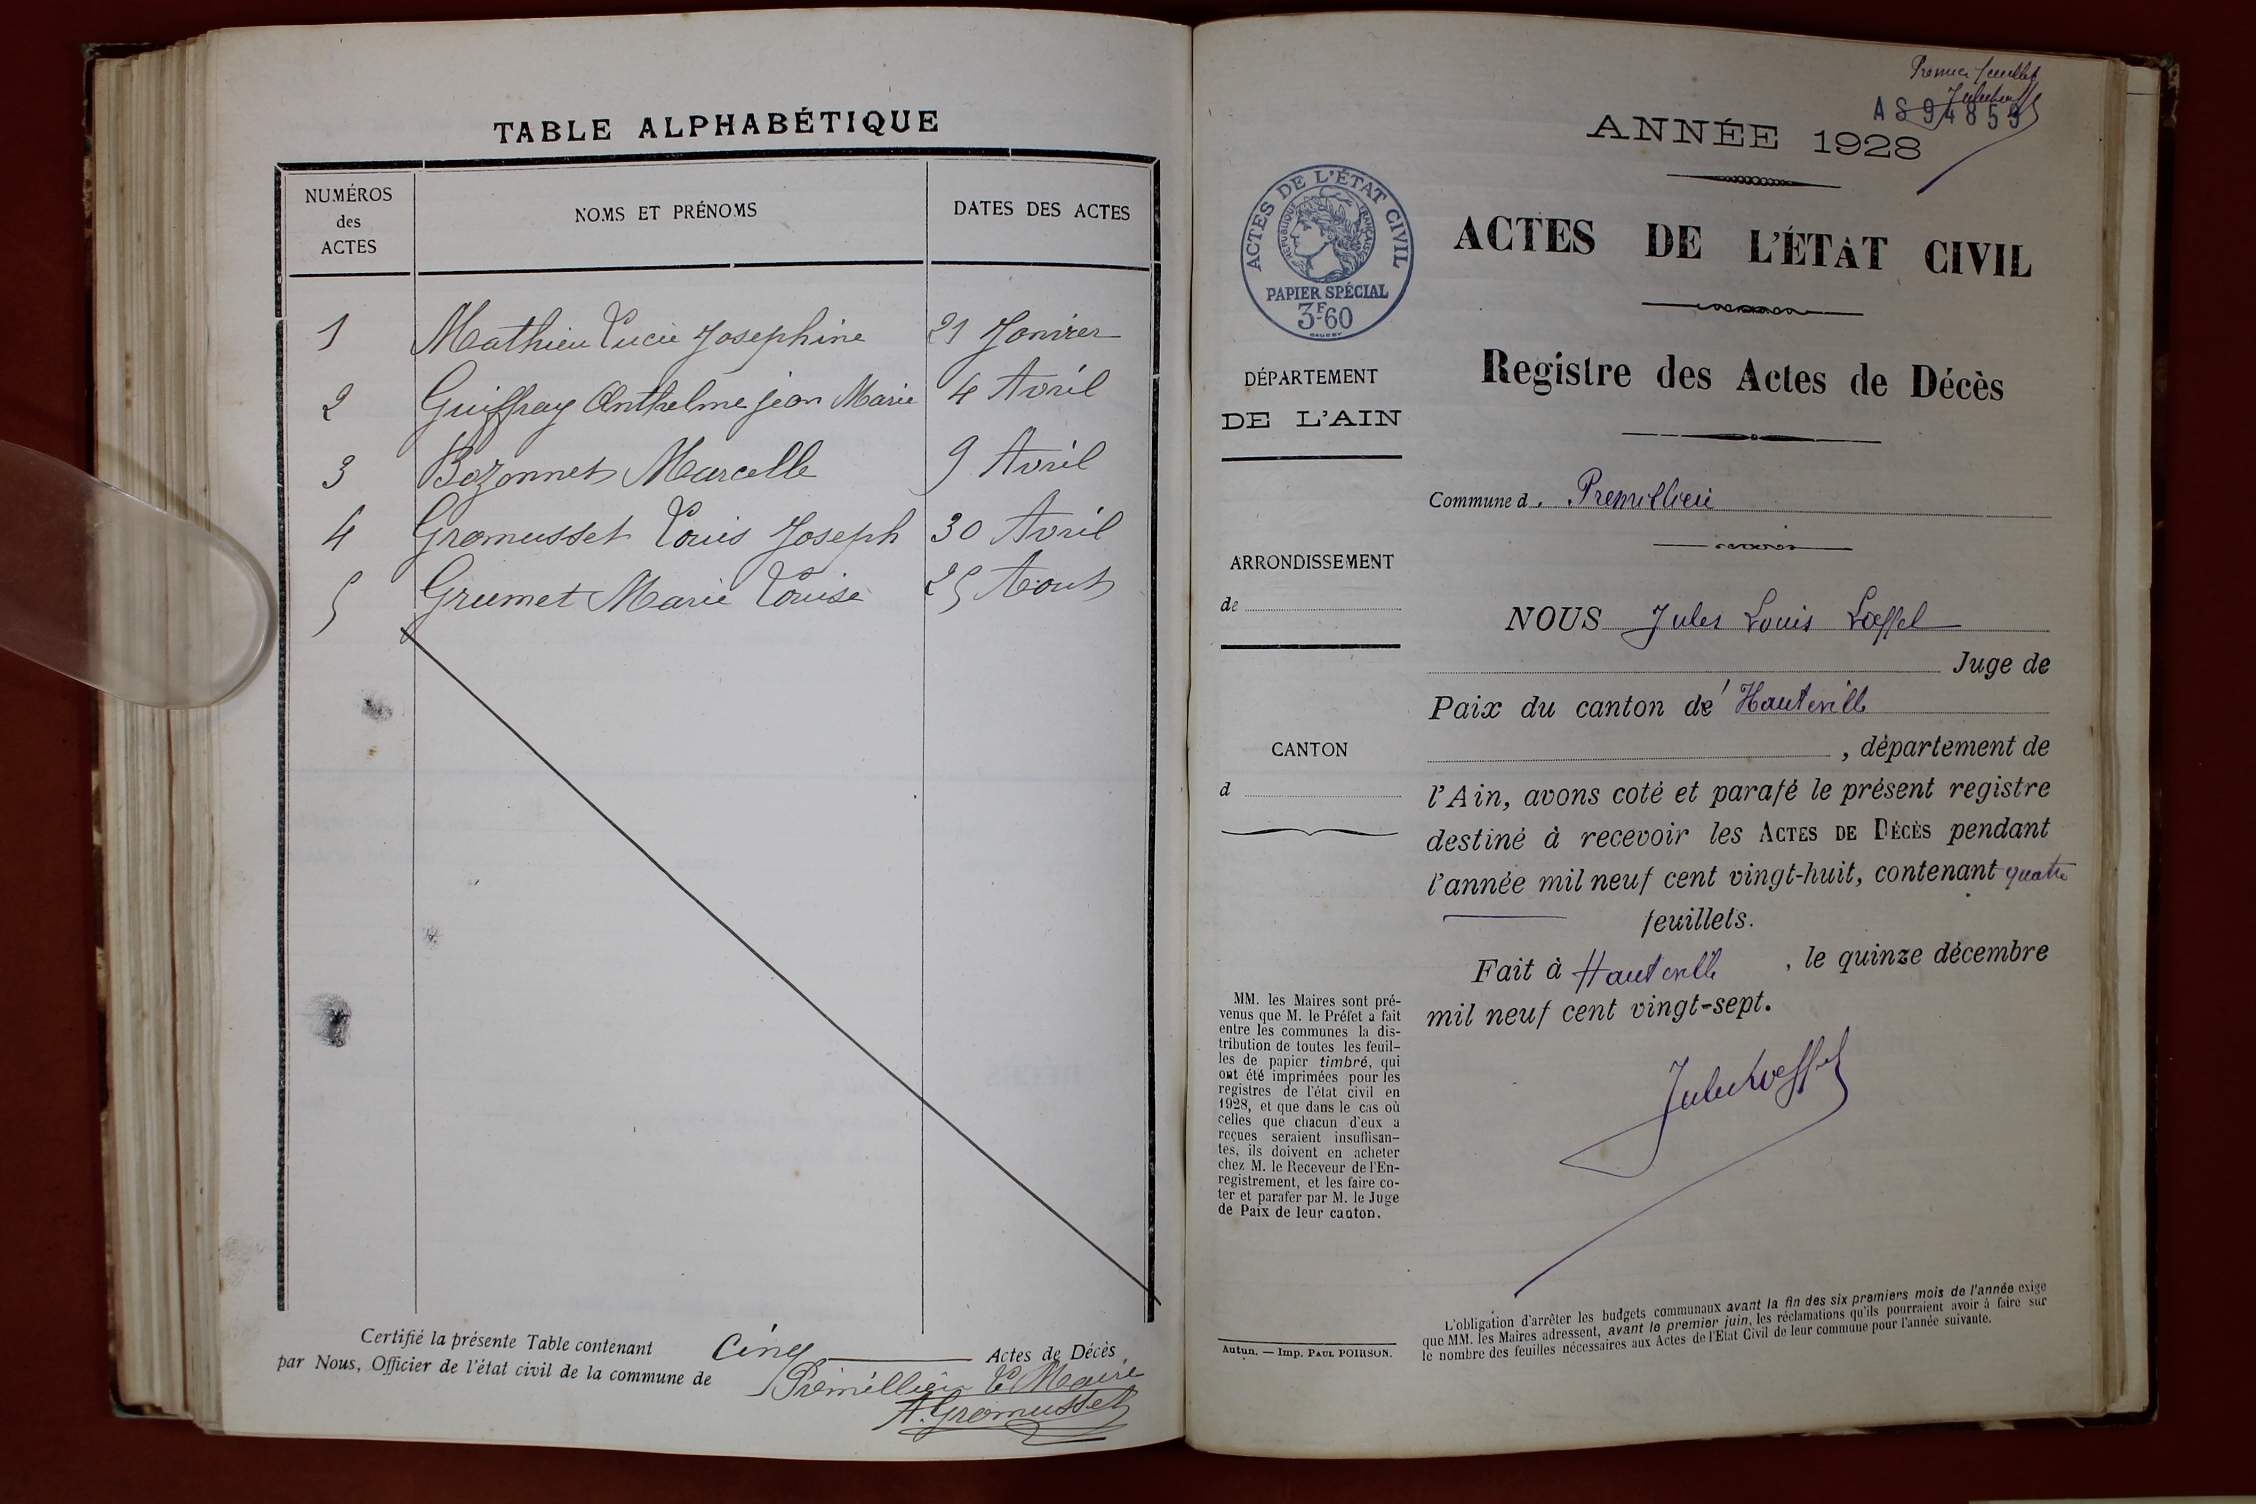 TABLE ALPHABÉTIQUE
NUMÉROS des ACTES
NOMS ET PRÉNOMS
DATES DES ACTES
1 Mathieu Lucie Josephine 21 Janvier
2 Guiffray Anthelme jean Marie 4 Avril
3 Bozonnet Marcelle 9 Avril
4 Gromusset Louis Joseph 30 Avril
5 Grumet Marie Louise 25 Aout
Certifié la présente Table contenant Cinq Actes de Décès
par Nous, Officier de l'état civil de la commune de Prémillieu Le Maire
A. Gromusset
Premier feuillet
AS 94859
ANNÉE 1928
ACTES DE L'ÉTAT CIVIL
RÉPUBLIQUE FRANÇAISE
PAPIER SPÉCIAL
3F60
ACTES DE L'ÉTAT CIVIL
Registre des Actes de Décès
DÉPARTEMENT
DE L'AIN
Commune d Premillieu
ARRONDISSEMENT
de
CANTON
d
NOUS Jules Louis Lœffel
Juge de
Paix du canton de Hauteville
, département de
l'Ain, avons coté et parafé le présent registre
destiné à recevoir les ACTES DE DÉCÈS pendant
l'année mil neuf cent vingt-huit, contenant quatre
feuillets.
Fait à Hauteville, le quinze décembre
mil neuf cent vingt-sept.
Jules Lœffel
MM. les Maires sont pré-
venus que M. le Préfet a fait
entre les communes la dis-
tribution de toutes les feuil-
les de papier timbré, qui
ont été imprimées pour les
registres de l'état civil en
1928, et que dans le cas où
celles que chacun d'eux a
reçues seraient insuffisan-
tes, ils doivent en acheter
chez M. le Receveur de l'En-
registrement, et les faire co-
ter et parafer par M. le Juge
de Paix de leur canton.
Autun. — Imp. PAUL POIRSON.
L'obligation d'arrêter les budgets communaux avant la fin des six premiers mois de l'année exige
que MM. les Maires adressent, avant le premier juin, les réclamations qu'ils pourraient avoir à faire sur
le nombre des feuilles nécessaires aux Actes de l'Etat Civil de leur commune pour l'année suivante.